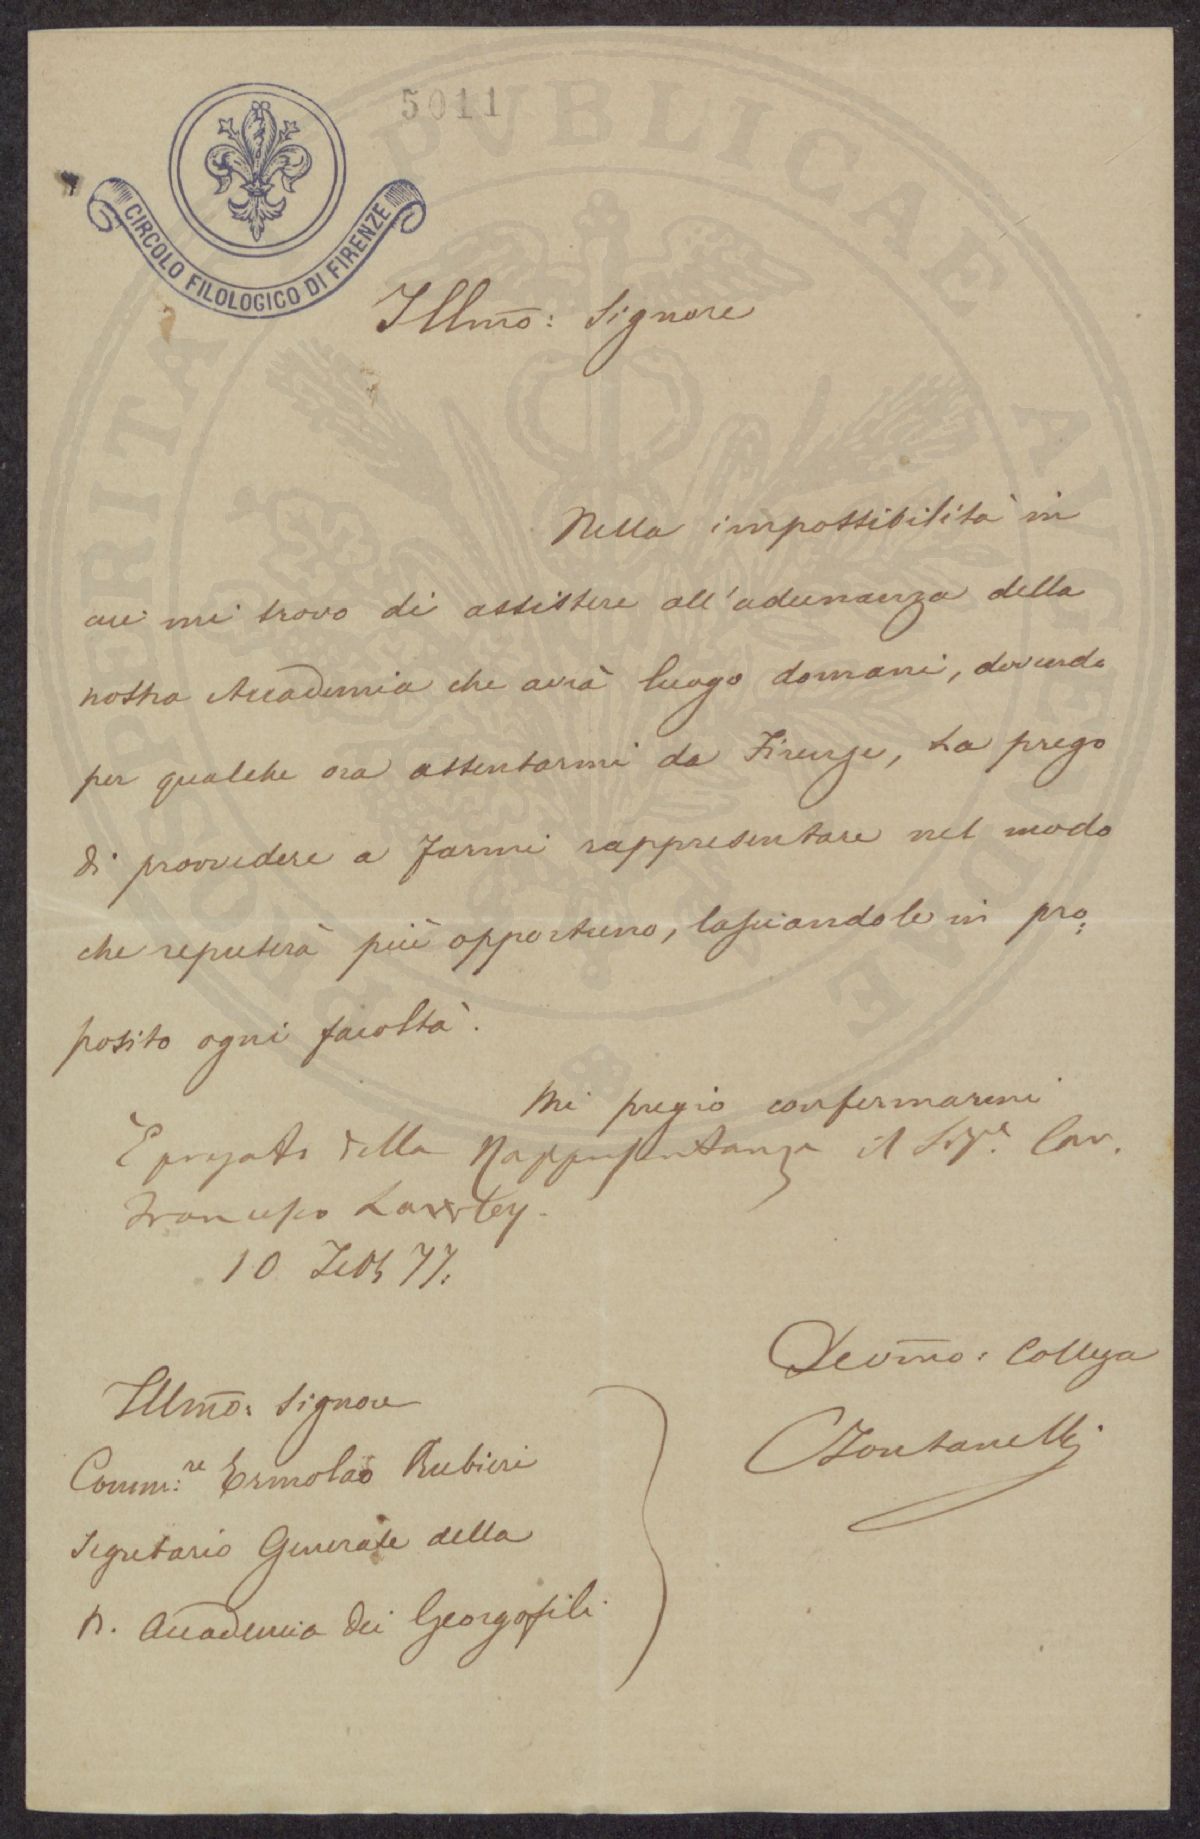 5011
CIRCOLO FILOLOGICO DI FIRENZE
PROSPERITATI PUBLICAE AUGENDAE
Illmo: Signore
Nella impossibilità in
cui mi trovo di assistere all'adunanza della
nostra Accademia che avrà luogo domani, dovendo
per qualche ora assentarmi da Firenze, La prego
di provvedere a farmi rappresentare nel modo
che reputerà più opportuno, lasciandole in pro:
posito ogni facoltà.
Mi pregio confermarmi
È pregato della Rappresentanza il Sigr. Cav.
Francesco
10 Febb 77.
Devmo: Collega
CFontanelli
Illmo: Signore
Comm:re Ermolao Rubieri
Segretario Generale della
R. Accademia dei Georgofili.